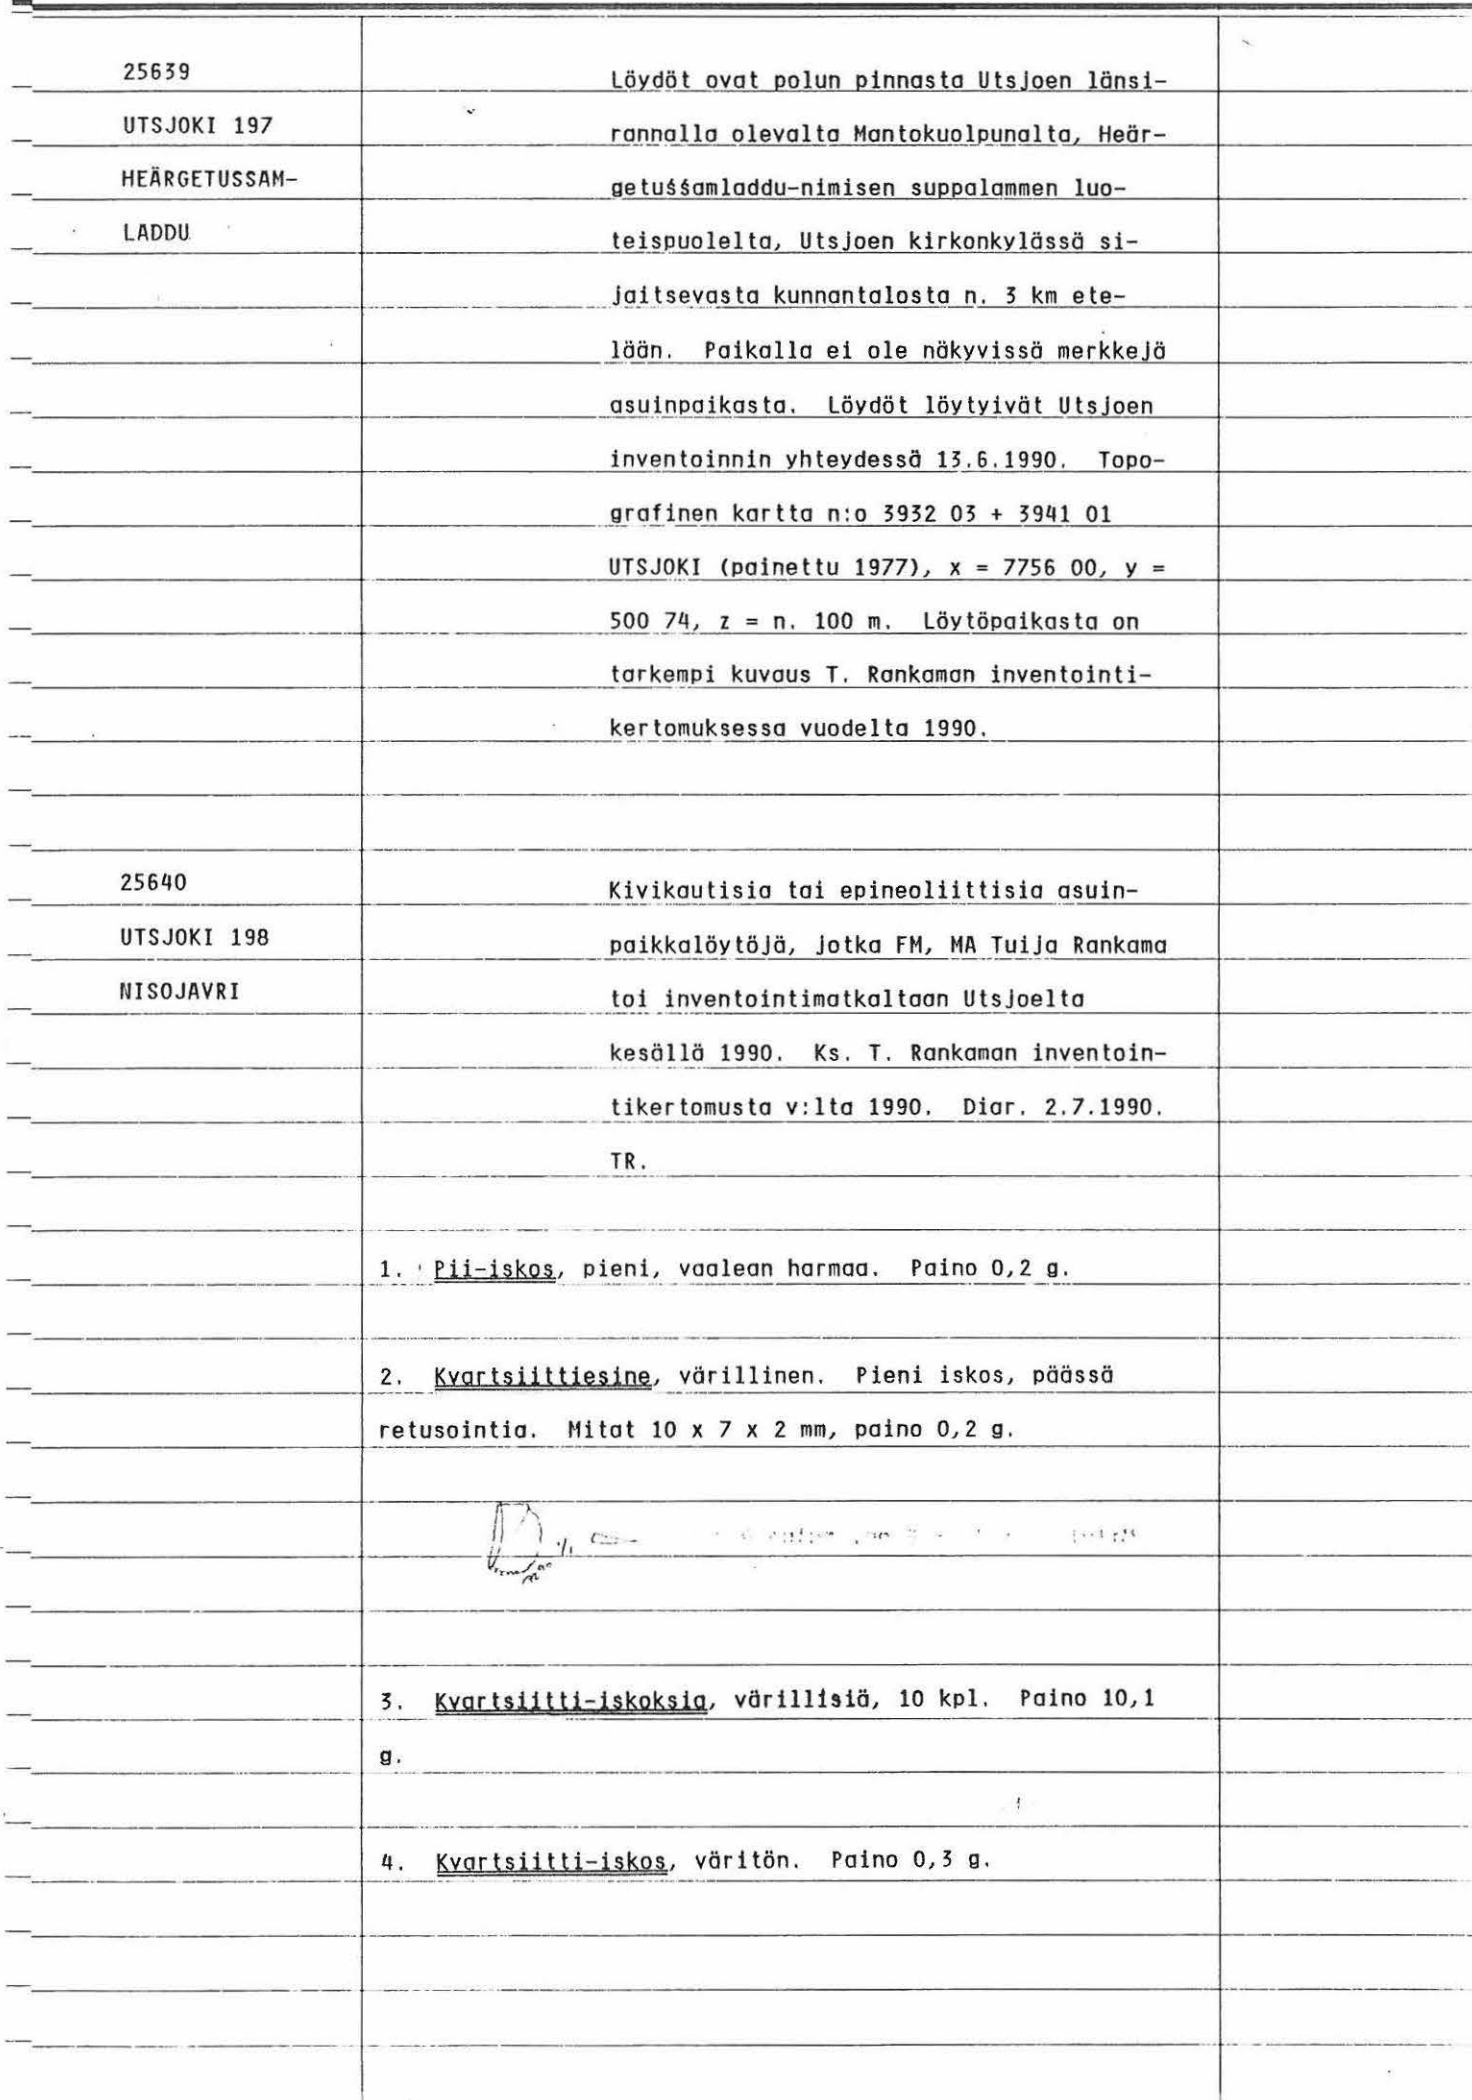 25639
UTSJOKI 197
HEÄRGETUSSAM-
LADDU
Löydöt ovat polun pinnasta Utsjoen länsi-
rannalla olevalta Mantokuolpunalta, Heär-
getuśśamladdu-nimisen suppalammen luo-
teispuolelta, Utsjoen kirkonkylässä si-
jaitsevasta kunnantalosta n. 3 km ete-
lään. Paikalla ei ole näkyvissä merkkejä
asuinpaikasta. Löydöt löytyivät Utsjoen
inventoinnin yhteydessä 13.6.1990. Topo-
grafinen kartta n:o 3932 03 + 3941 01
UTSJOKI (painettu 1977), x = 7756 00, y =
500 74, z = n. 100 m. Löytöpaikasta on
tarkempi kuvaus T. Rankaman inventointi-
kertomuksessa vuodelta 1990.
25640
UTSJOKI 198
NISOJAVRI
Kivikautisia tai epineoliittisia asuin-
paikkalöytöjä, jotka FM, MA Tuija Rankama
toi inventointimatkaltaan Utsjoelta
kesällä 1990. Ks. T. Rankaman inventoin-
tikertomusta v:lta 1990. Diar. 2.7.1990.
TR.
1. Pii-iskos, pieni, vaalean harmaa. Paino 0,2 g.
2. Kvartsiittiesine, värillinen. Pieni iskos, päässä
retusointia. Mitat 10 x 7 x 2 mm, paino 0,2 g.
1/1
3. Kvartsiitti-iskoksia, värillisiä, 10 kpl. Paino 10,1
g.
4. Kvartsiitti-iskos, väritön. Paino 0,3 g.